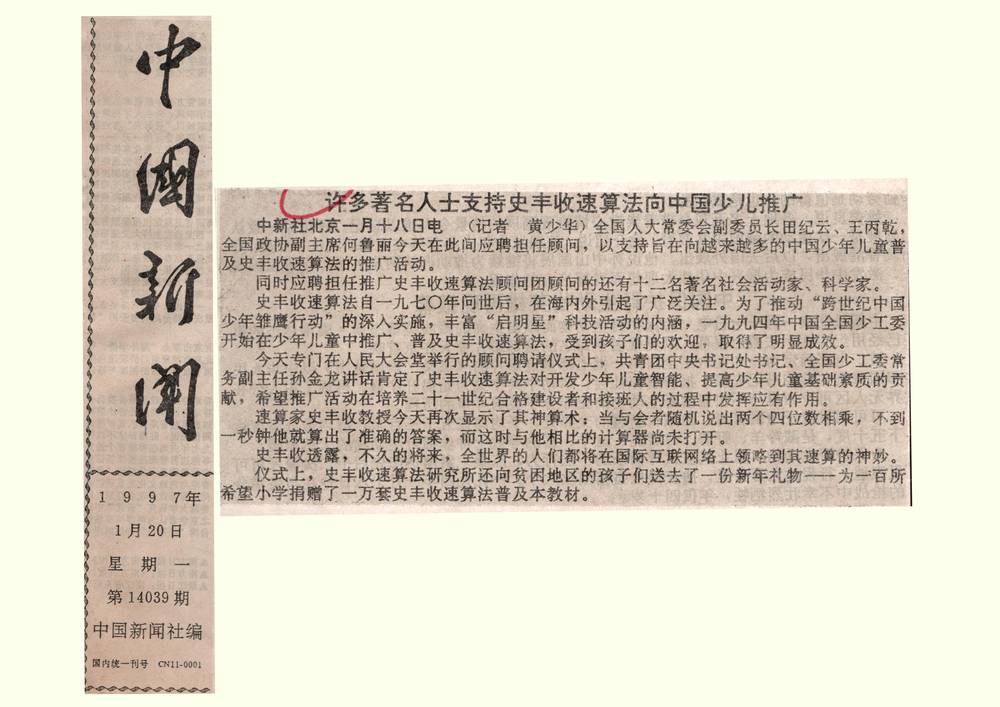 中國新聞
1997年
1月20日
星期一
第14039期
中国新闻社编
国内统一刊号 CN11-0001
许多著名人士支持史丰收速算法向中国少儿推广
中新社北京一月十八日电 （记者 黄少华）全国人大常委会副委员长田纪云、王丙乾，
全国政协副主席何鲁丽今天在此间应聘担任顾问，以支持旨在向越来越多的中国少年儿童普
及史丰收速算法的推广活动。
同时应聘担任推广史丰收速算法顾问团顾问的还有十二名著名社会活动家、科学家。
史丰收速算法自一九七〇年问世后，在海内外引起了广泛关注。为了推动“跨世纪中国
少年雏鹰行动”的深入实施，丰富“启明星”科技活动的内涵，一九九四年中国全国少工委
开始在少年儿童中推广、普及史丰收速算法，受到孩子们的欢迎，取得了明显成效。
今天专门在人民大会堂举行的顾问聘请仪式上，共青团中央书记处书记、全国少工委常
务副主任孙金龙讲话肯定了史丰收速算法对开发少年儿童智能、提高少年儿童基础素质的贡
献，希望推广活动在培养二十一世纪合格建设者和接班人的过程中发挥应有作用。
速算家史丰收教授今天再次显示了其神算术：当与会者随机说出两个四位数相乘，不到
一秒钟他就算出了准确的答案，而这时与他相比的计算器尚未打开。
史丰收透露，不久的将来，全世界的人们都将在国际互联网络上领略到其速算的神妙。
仪式上，史丰收速算法研究所还向贫困地区的孩子们送去了一份新年礼物——为一百所
希望小学捐赠了一万套史丰收速算法普及本教材。